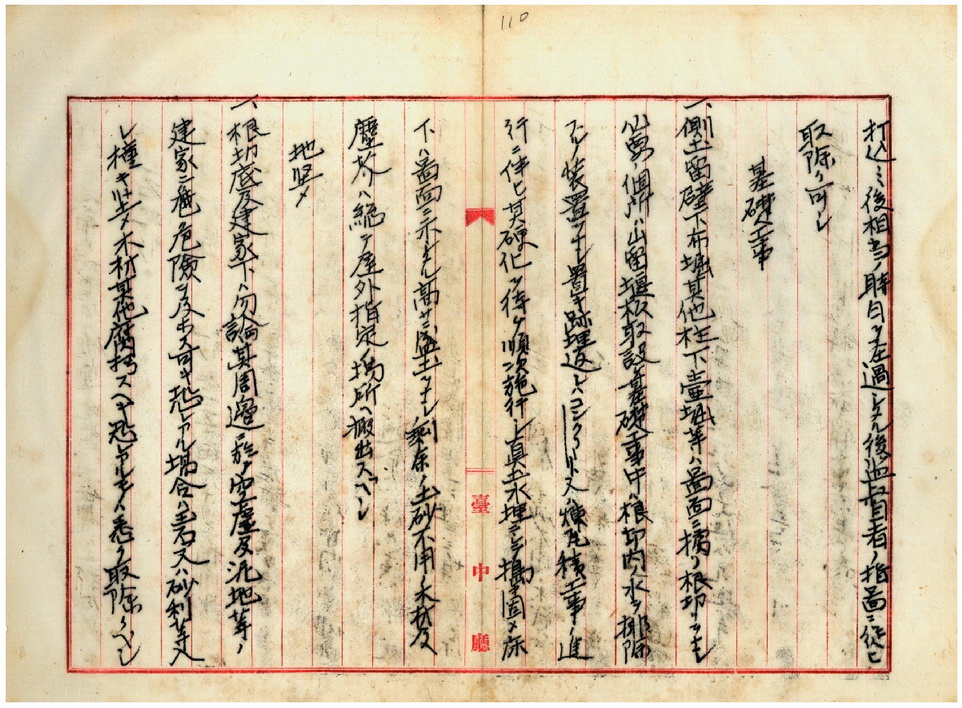 110
打込ミ後相当ノ時日ヲ経過シタル後監督者ノ指図ニ従ヒ
取除ク可シ
基礎工事
一、側土留壁下布堀其他柱下壷堀等ハ図面ニ拠リ根切ヲナシ
必要個所ハ山留堰板取設ケ基礎工事中ハ根切内ノ水ヲ排除
スル装置ヲナシ置キ跡埋返シハコンクリート又ハ煉瓦積工事ノ進
行ニ伴ヒ其硬化ヲ待ケ順次施行シ真土水埋ニシテ搗固メ床
下ハ図面ニ示シタル高サニ盛土ヲナシ剰余ノ土砂不用ノ木材及
塵芥ハ総テ屋外指定ノ場所ヘ搬出スベシ
地堅メ
一、根切底及建家下ハ勿論其周邊ニ於テ空虚及泥地等ノ
建家ニ危険ヲ及ホス可キ恐レアル場合ハ岩又ハ砂利等入
レ樁キ堅メ木材其他腐朽スヘキ恐アルモノハ悉ク取除クヘシ
臺中廳